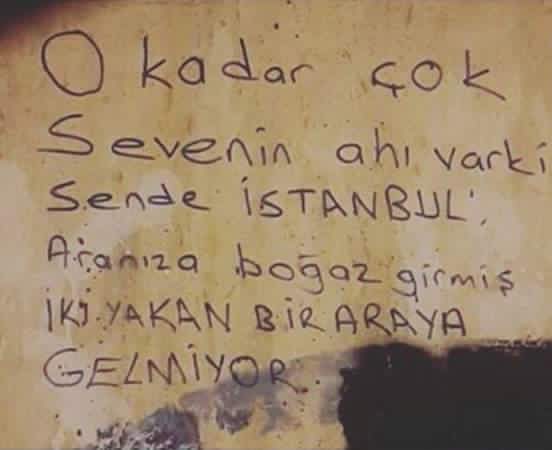 O kadar çok
Sevenin ahı varki
Sende İSTANBUL',
Aranıza boğaz girmiş
İKİ YAKAN BİR ARAYA
GELMİYOR.